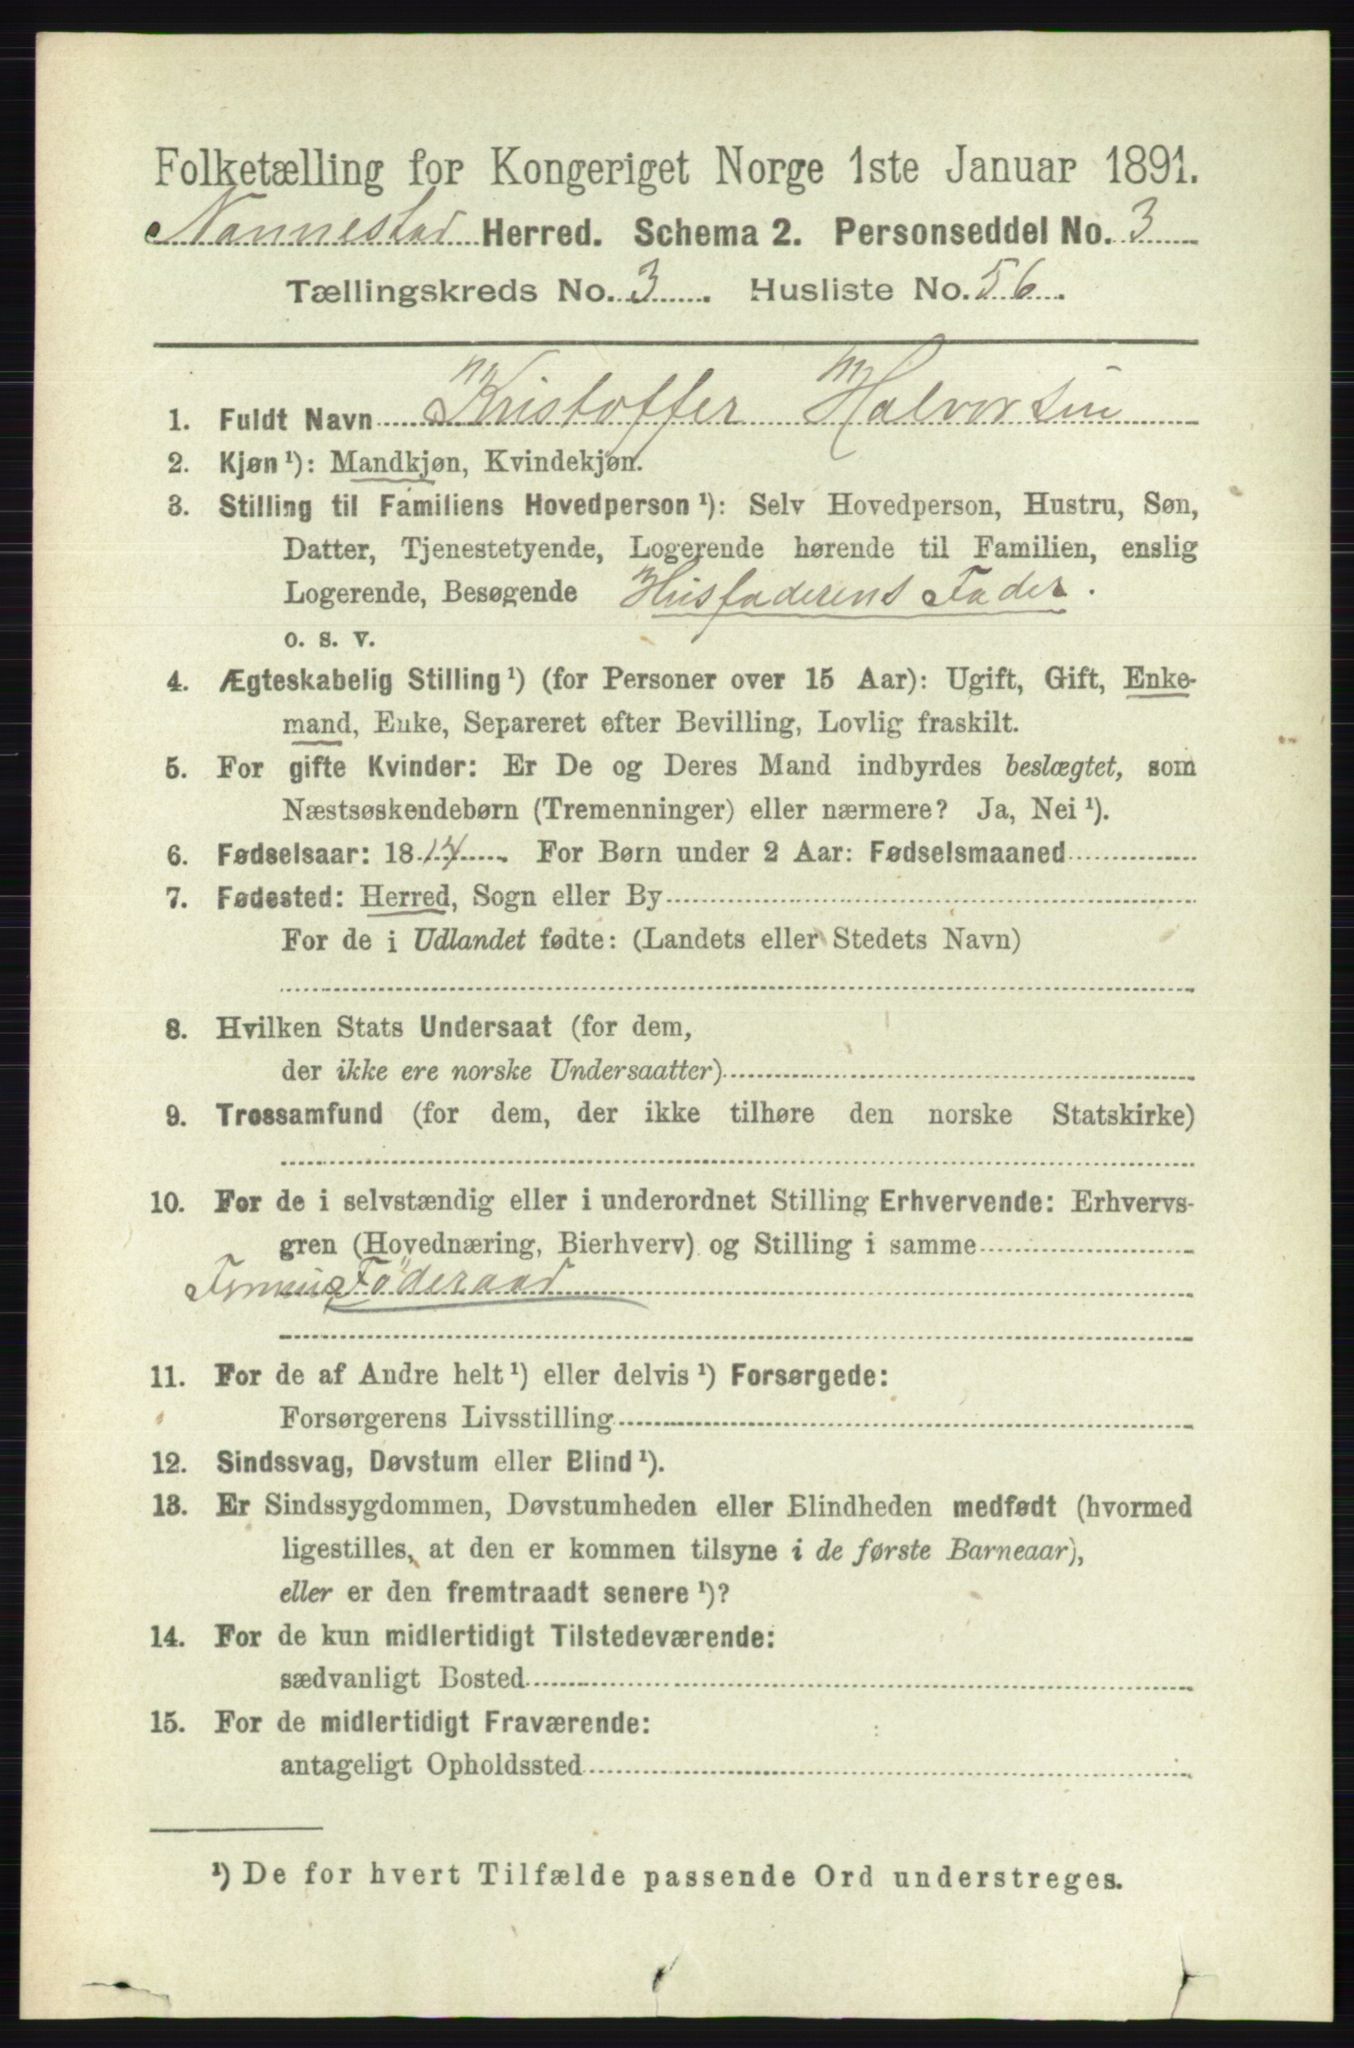 Folketælling for Kongeriget Norge 1ste Januar 1891.
Nannestad Herred. Schema 2. Personseddel No. 3
Tællingskreds No. 3. Husliste No. 56.
1. Fuldt Navn Kristoffer Halvorsen
2. Kjøn ¹): Mandkjøn, Kvindekjøn.
3. Stilling til Familiens Hovedperson ¹): Selv Hovedperson, Hustru, Søn,
Datter, Tjenestetyende, Logerende hørende til Familien, enslig
Logerende, Besøgende Husfaderens Fader.
o. s. v.
4. Ægteskabelig Stilling ¹) (for Personer over 15 Aar): Ugift, Gift, Enke-
mand, Enke, Separeret efter Bevilling, Lovlig fraskilt.
5. For gifte Kvinder: Er De og Deres Mand indbyrdes beslægtet, som
Næstsøskendebørn (Tremenninger) eller nærmere? Ja, Nei ¹).
6. Fødselsaar: 1814. For Børn under 2 Aar: Fødselsmaaned
7. Fødested: Herred, Sogn eller By
For de i Udlandet fødte: (Landets eller Stedets Navn)
8. Hvilken Stats Undersaat (for dem,
der ikke ere norske Undersaatter)
9. Trossamfund (for dem, der ikke tilhøre den norske Statskirke)
10. For de i selvstændig eller i underordnet Stilling Erhvervende: Erhvervs-
gren (Hovednæring, Bierhverv) og Stilling i samme
Föderaad
11. For de af Andre helt ¹) eller delvis ¹) Forsørgede:
Forsørgerens Livsstilling
12. Sindssvag, Døvstum eller Blind ¹).
13. Er Sindssygdommen, Døvstumheden eller Blindheden medfødt (hvormed
ligestilles, at den er kommen tilsyne i de første Barneaar),
eller er den fremtraadt senere ¹)?
14. For de kun midlertidigt Tilstedeværende:
sædvanligt Bosted
15. For de midlertidigt Fraværende:
antageligt Opholdssted
¹) De for hvert Tilfælde passende Ord understreges.